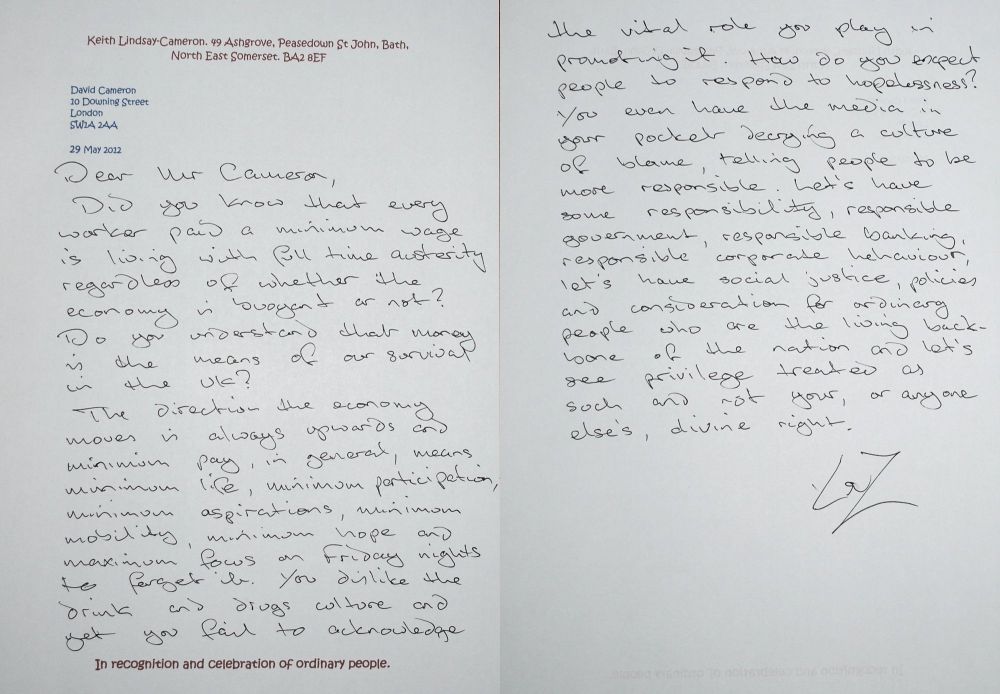 Keith Lindsay-Cameron. 49 Ashgrove, Peasedown St John, Bath,
North East Somerset. BA2 8EF
David Cameron
10 Downing Street
London
SW1A 2AA
29 May 2012
Dear Mr Cameron,
Did you know that every
worker paid a minimum wage
is living with full time austerity
regardless of whether the
economy is buoyant or not?
Do you understand that money
is the means of our survival
in the UK?
The direction the economy
moves is always upwards and
minimum pay, in general, means
minimum life, minimum participation,
minimum aspirations, minimum
mobility, minimum hope and
maximum focus on Friday nights
to forget it. You dislike the
drink and drugs culture and
yet you fail to acknowledge
In recognition and celebration of ordinary people.
the vital role you play in
promoting it. How do you expect
people to respond to hopelessness?
You even have the media in
your pocket decrying a culture
of blame, telling people to be
more responsible. Let's have
some responsibility, responsible
government, responsible banking,
responsible corporate behaviour,
let's have social justice, policies
and consideration for ordinary
people who are the living back-
bone of the nation and let's
see privilege treated as
such and not your, or anyone
else's, divine right.